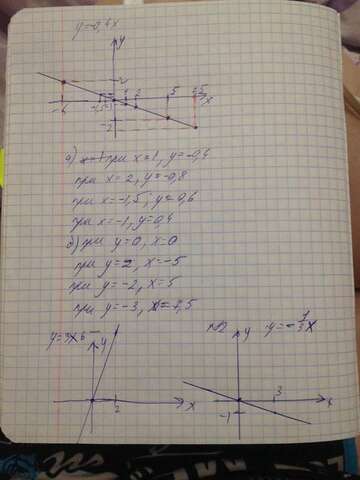 y=-0,4x
y
2
-6
1 2
5
7,5
x
-2
а) при x=1, y=-0,4
при x=2, y=-0,8
при x=-1,5; y=0,6
при x=-1, y=0,4
б) при y=0, x=0
при y=2, x=-5
при y=-2, x=5
при y=-3, x=7,5
y
2
x
№2
y
y=-1/3x
3
-1
x